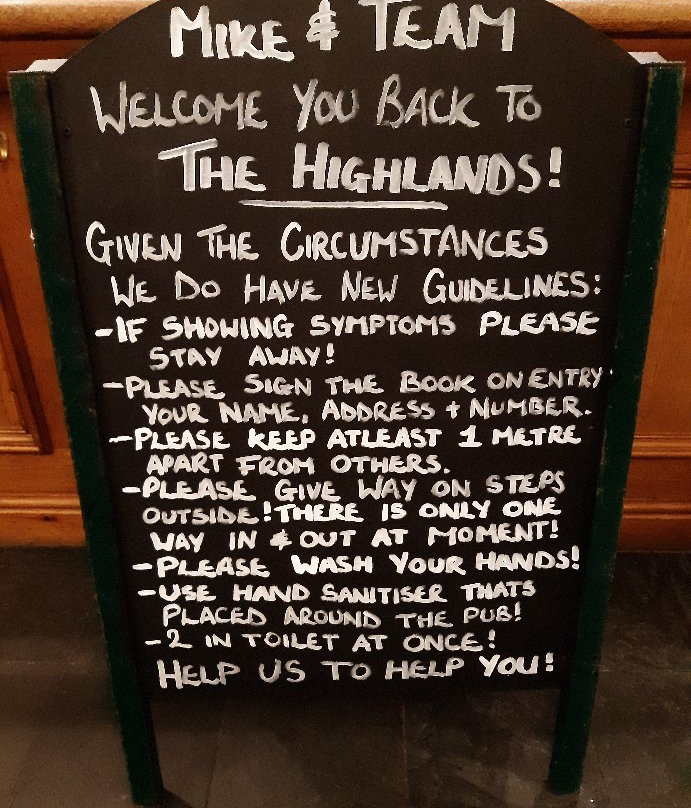 MIKE & TEAM
WELCOME YOU BACK TO
THE HIGHLANDS!
GIVEN THE CIRCUMSTANCES
WE DO HAVE NEW GUIDELINES:
-IF SHOWING SYMPTOMS PLEASE
STAY AWAY!
-PLEASE SIGN THE BOOK ON ENTRY.
YOUR NAME, ADDRESS + NUMBER.
-PLEASE KEEP ATLEAST 1 METRE
APART FROM OTHERS.
-PLEASE GIVE WAY ON STEPS
OUTSIDE! THERE IS ONLY ONE
WAY IN & OUT AT MOMENT!
-PLEASE WASH YOUR HANDS!
-USE HAND SANITISER THATS
PLACED AROUND THE PUB!
-2 IN TOILET AT ONCE!
HELP US TO HELP YOU!